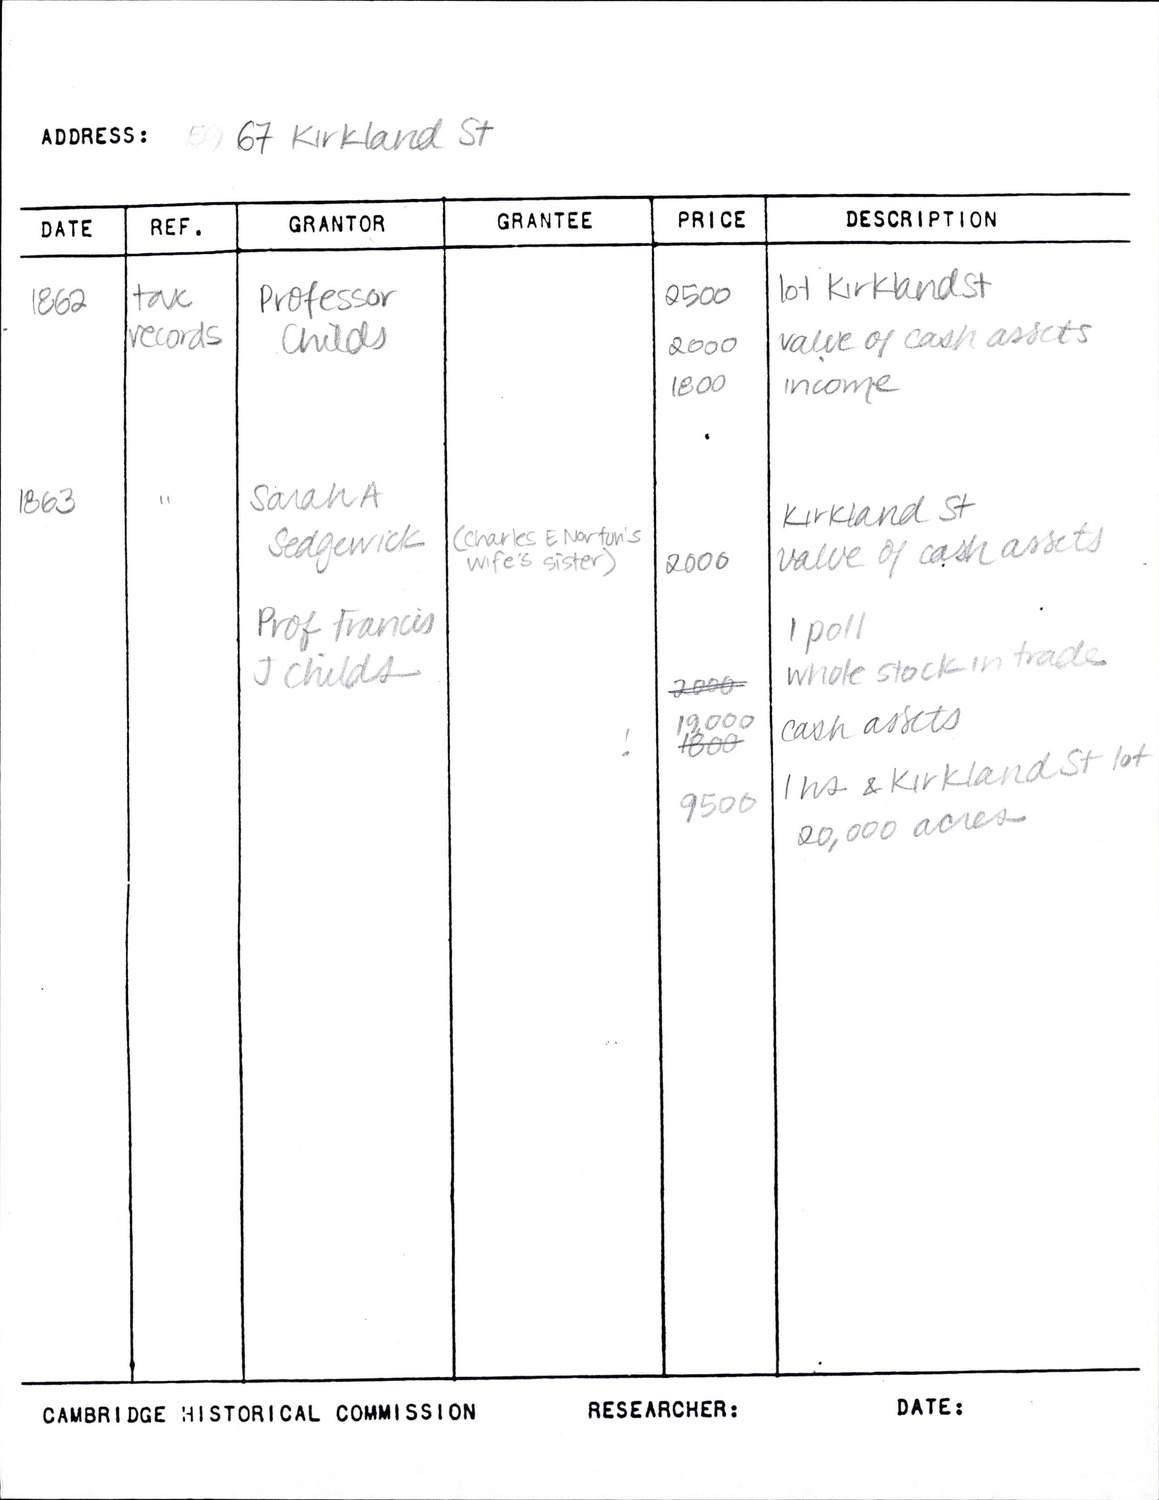 ADDRESS: 67 Kirkland St
DATE REF. GRANTOR GRANTEE PRICE DESCRIPTION
1862 tax Professor 2500 lot Kirkland St
records Childs 2000 value of cash assets
1800 income
1863 " Sarah A Kirkland St
Sedgewick (Charles E Norton's
wife's sister) 2000 value of cash assets
Prof Francis 1 poll
J Childs 2000 whole stock in trade
19,000 cash assets
! 1800
9500 1 hs & Kirkland St lot
20,000 acres
CAMBRIDGE HISTORICAL COMMISSION RESEARCHER: DATE: